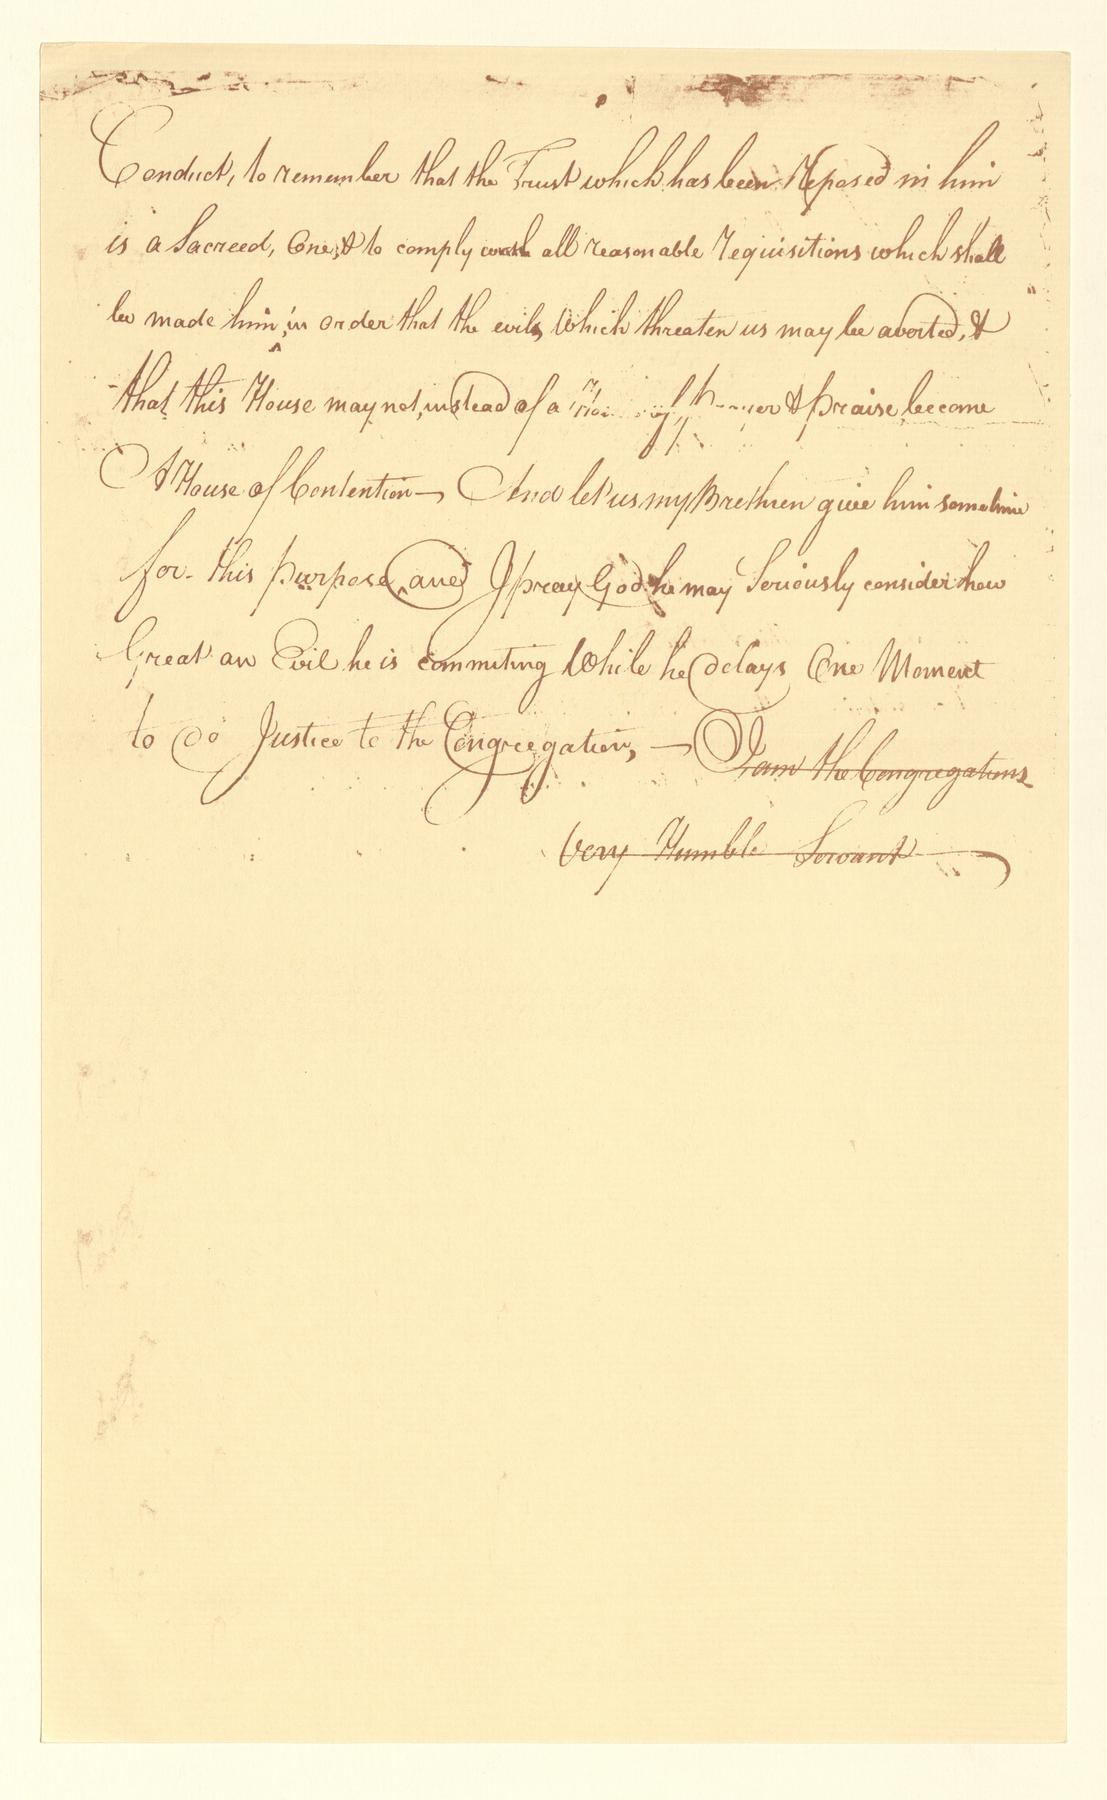 Conduct, to remember that the Trust which has been Reposed in him
is a Sacreed, One, & to comply with all reasonable requisitions which shall
be made him, in order that the evils, Which threaten us may be avorted, &
that this House may not, instead of a House of prayer & praise, become
A House of Contention— And let us my Brethren give him some time
for this purpose, and I pray God he may Seriously consider how
Great an Evil he is commiting While he delays One Moment
to do Justice to the Congregation, — I am the Congregations
Very Humble Servant